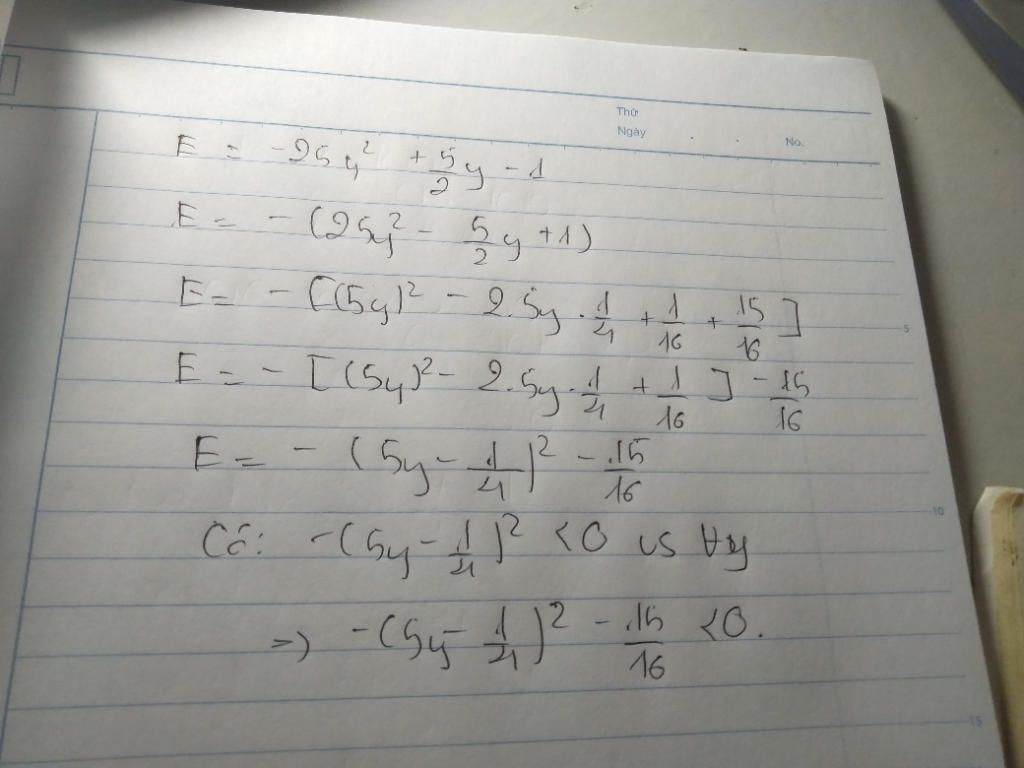 Thứ
Ngày
No.
E = -25y² + 5/2 y - 1
E = - (25y² - 5/2 y + 1)
E = - [(5y)² - 2.5y . 1/4 + 1/16 + 15/16]
5
E = - [(5y)² - 2.5y . 1/4 + 1/16] - 15/16
E = - (5y - 1/4)² - 15/16
10
Có: -(5y - 1/4)² < 0 vs ∀y
=) -(5y - 1/4)² - 15/16 < 0.
15